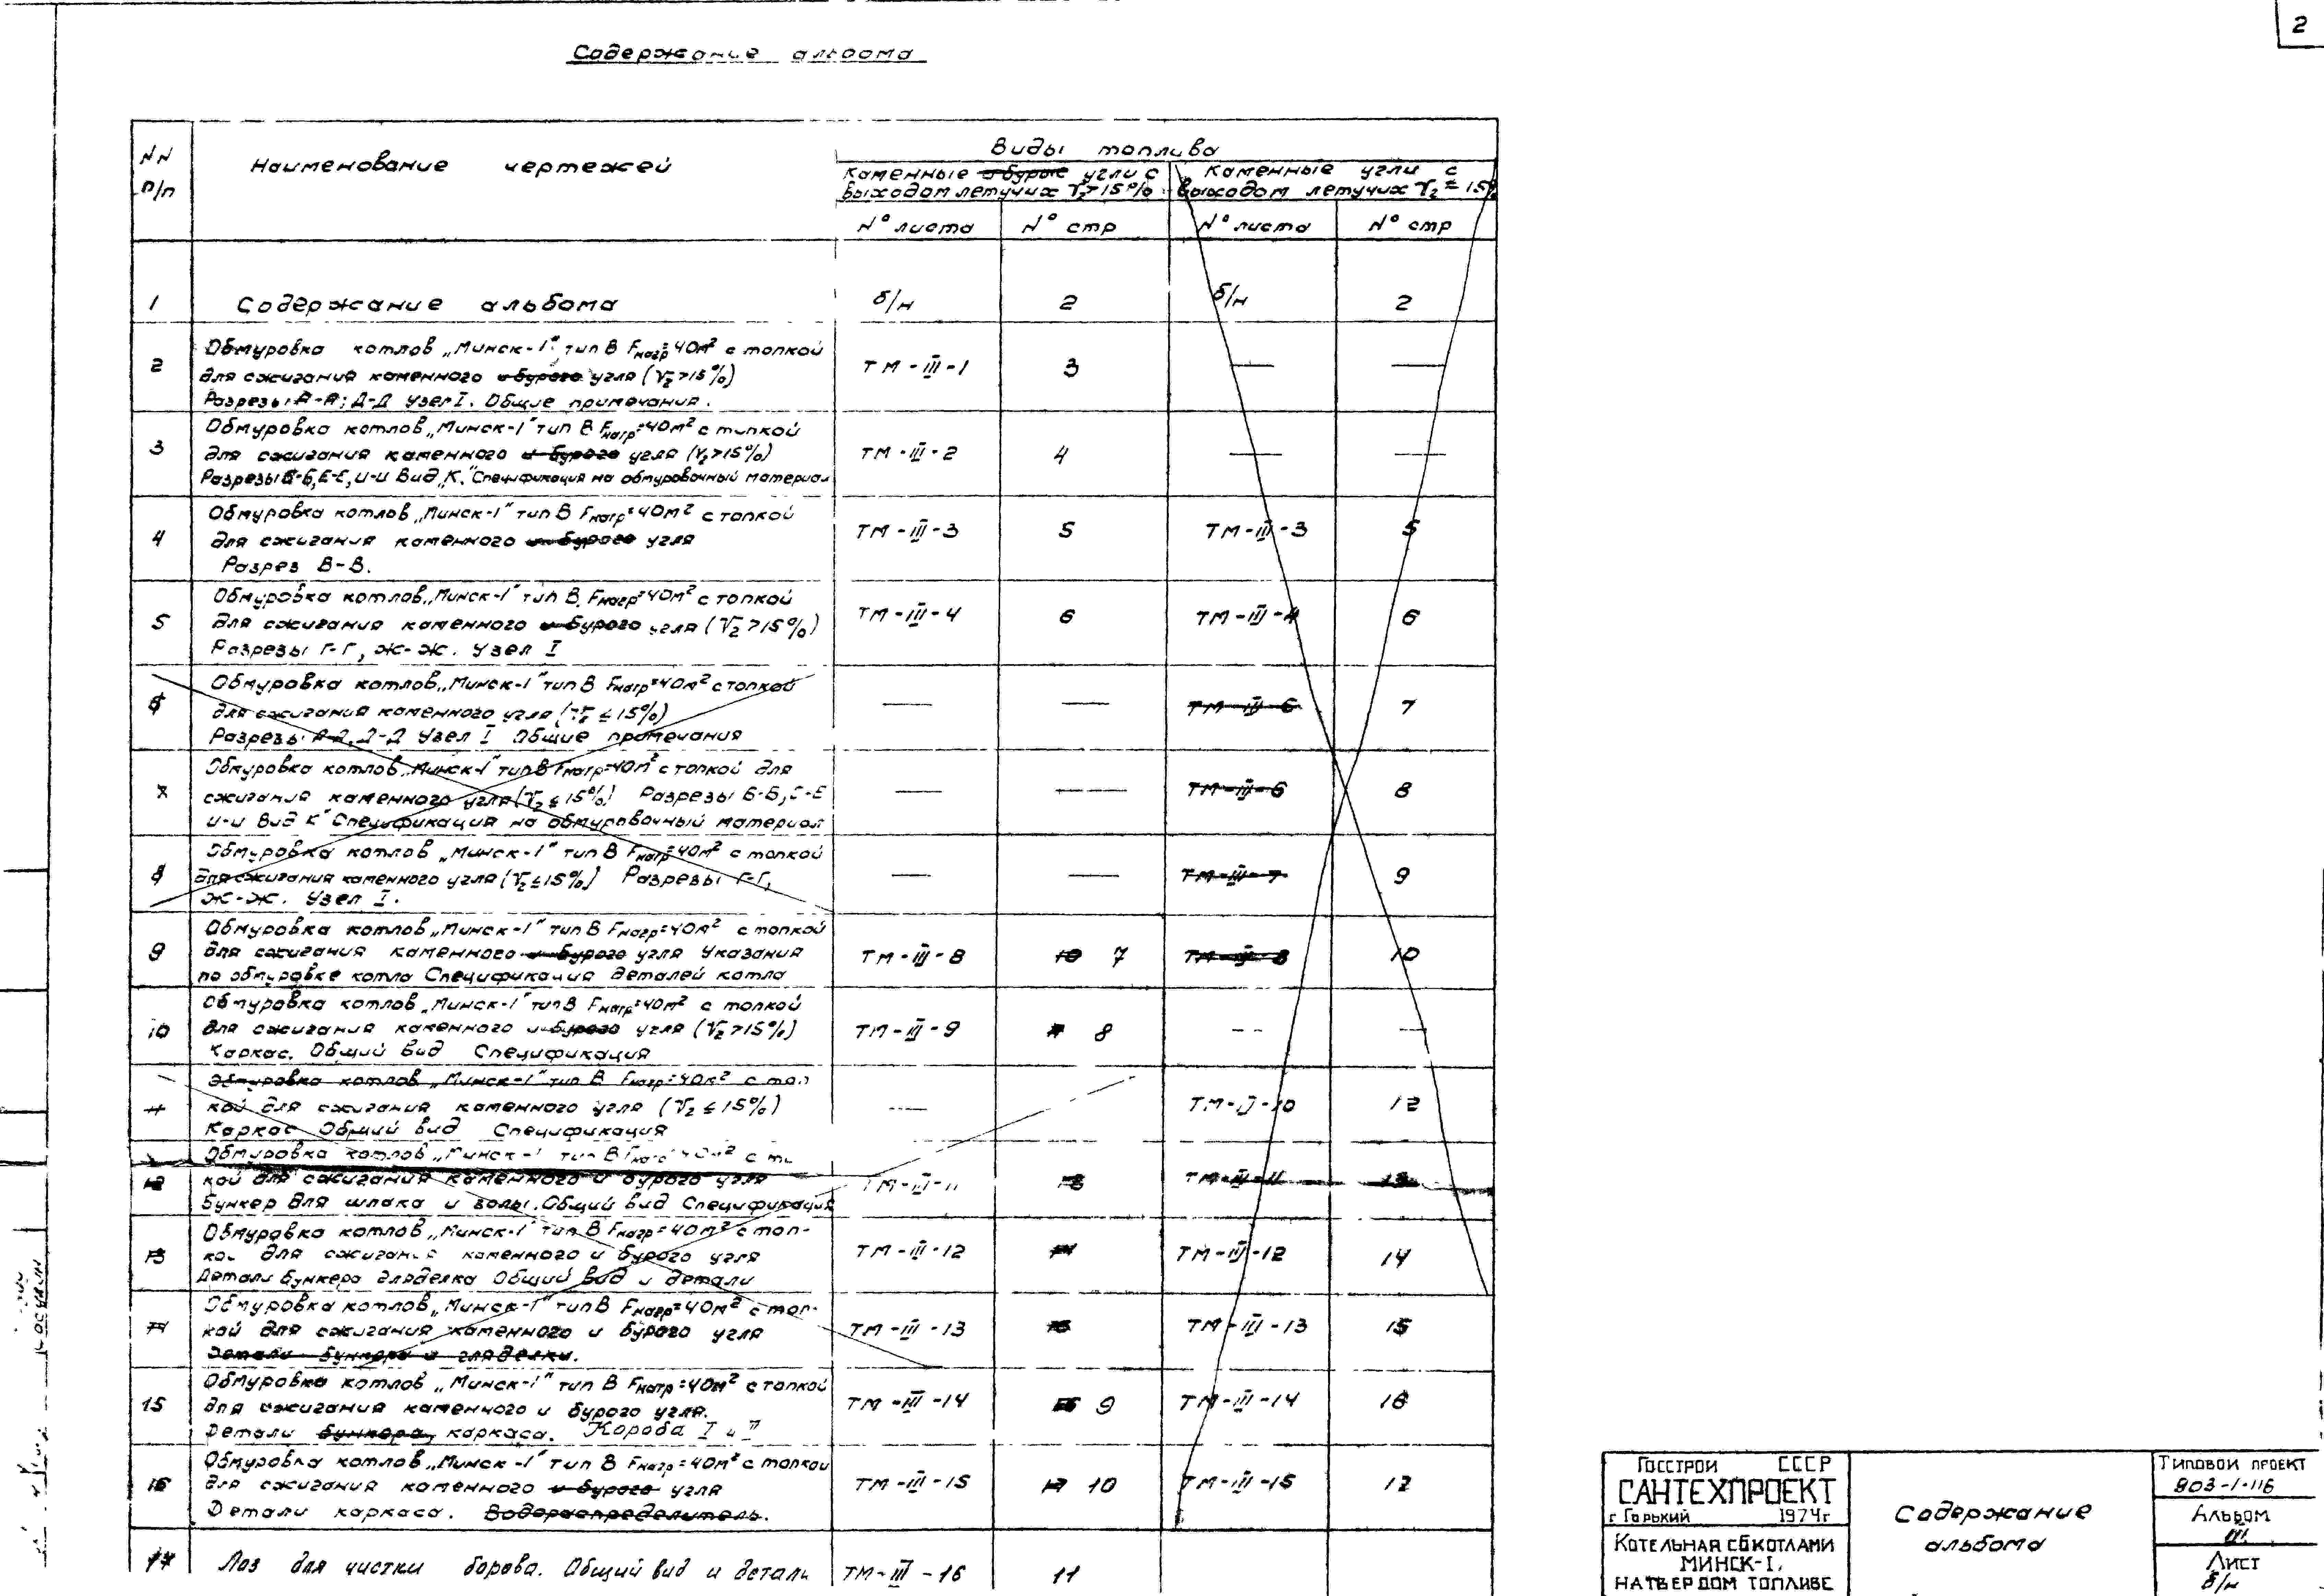 2
Содержание альбома
NN п/п
Наименование чертежей
Виды топлива
Каменные и бурые угли с выходом летучих V₂>15%
Каменные угли с выходом летучих V₂≤15%
N° листа N° стр N° листа N° стр
1 Содержание альбома б/н 2 б/н 2
Обмуровка котлов „Минск-1" тип В Fнагр=40м² с топкой
2 для сжигания каменного и бурого угля (V₂>15%) ТМ-III-1 3 — —
Разрезы А-А; Д-Д Узел I. Общие примечания.
Обмуровка котлов „Минск-1" тип В Fнагр=40м² с топкой
3 для сжигания каменного и бурого угля (V₂>15%) ТМ-III-2 4 — —
Разрезы Б-Б, Е-Е, И-И Вид „К." Спецификация на обмуровочный материал
Обмуровка котлов „Минск-1" тип В Fнагр=40м² с топкой
4 для сжигания каменного и бурого угля ТМ-III-3 5 ТМ-III-3 5
Разрез В-В.
Обмуровка котлов „Минск-1" тип В. Fнагр=40м² с топкой
5 для сжигания каменного и бурого угля (V₂>15%) ТМ-III-4 6 ТМ-III-4 6
Разрезы Г-Г, Ж-Ж. Узел I
Обмуровка котлов „Минск-1" тип В Fнагр=40м² с топкой
6 для сжигания каменного угля (V₂≤15%) — — 7
Разрезы А-А, Д-Д Узел I Общие примечания
Обмуровка котлов „Минск-1" тип В Fнагр=40м² с топкой для
7 сжигания каменного угля (V₂≤15%) Разрезы Б-Б, Е-Е — — ТМ-III-6 8
И-И Вид К" Спецификация на обмуровочный материал
Обмуровка котлов „Минск-1" тип В Fнагр=40м² с топкой
8 для сжигания каменного угля (V₂≤15%) Разрезы Г-Г, — — ТМ-III-7 9
Ж-Ж. Узел I.
Обмуровка котлов „Минск-1" тип В Fнагр=40м² с топкой
9 для сжигания каменного и бурого угля Указания ТМ-III-8 10 7 ТМ-III-8 10
по обмуровке котла Спецификация деталей котла
Обмуровка котлов „Минск-1" тип В Fнагр=40м² с топкой
10 для сжигания каменного и бурого угля (V₂>15%) ТМ-III-9 8 — —
Каркас. Общий вид Спецификация
Обмуровка котлов „Минск-1" тип В Fнагр=40м² с топ
11 кой для сжигания каменного угля (V₂≤15%) — — ТМ-III-10 12
Каркас Общий вид Спецификация
Обмуровка котлов „Минск-1 тип В Fнагр=40м² с
12 кой для сжигания каменного и бурого угля ТМ-III-11 13 ТМ-III-11 13
Бункер для шлака и золы. Общий вид Спецификация
Обмуровка котлов „Минск-1" тип В Fнагр=40м² с топ-
13 кой для сжигания каменного и бурого угля ТМ-III-12 14 ТМ-III-12 14
Детали бункера гляделка Общий вид и детали
Обмуровка котлов „Минск-1" тип В Fнагр=40м² с топ-
14 кой для сжигания каменного и бурого угля ТМ-III-13 15 ТМ-III-13 15
Детали бункера и гляделки.
Обмуровка котлов „Минск-1" тип В Fнагр=40м² с топкой
15 для сжигания каменного и бурого угля. ТМ-III-14 9 ТМ-III-14 16
Детали бункера, каркаса. Короба I и II
Обмуровка котлов „Минск-1" тип В Fнагр=40м² с топкой
16 для сжигания каменного и бурого угля ТМ-III-15 17 10 ТМ-III-15 17
Детали каркаса. Водораспределитель.
17 Лаз для чистки борова. Общий вид и детали ТМ-III-16 11
Госстрой СССР
САНТЕХПРОЕКТ
г Горький 1974г
Котельная с 6 котлами
МИНСК-I,
НА ТВЕРДОМ ТОПЛИВЕ
Содержание
альбома
Типовой проект
903-1-116
Альбом
III
Лист
б/н